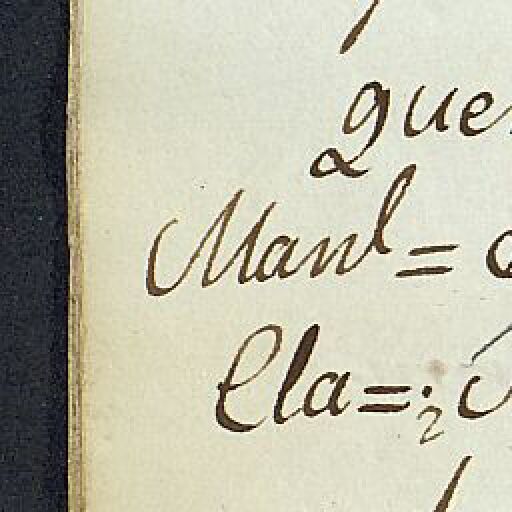 que
Man^l =
Cla = ¿